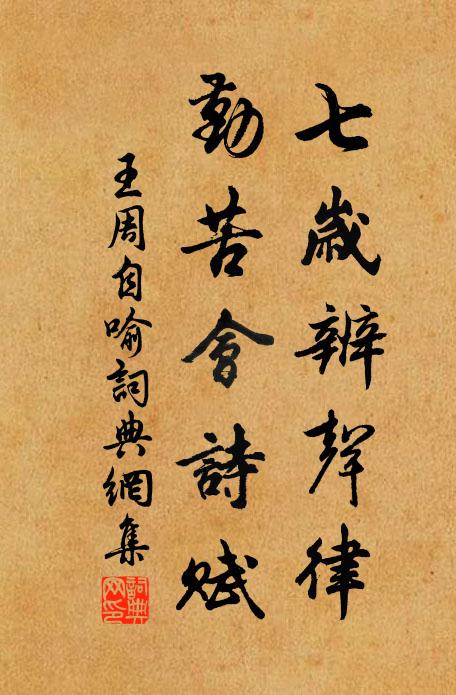 七歲辨聲律
勤苦會詩賦
王周自喻詞典網集
詞典網印